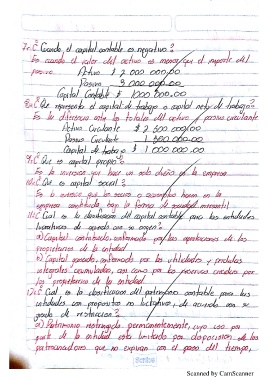 7.¿ Cuando, el capital contable es negativo?
Es cuando el valor del activo es menor que el importe del
pasivo Activo $ 2 000 000.00
Pasivo 3 000 000.00
Capital Contable $ 1000 000.00
8.¿ Que representa el capital de trabajo o capital neto de trabajo?
Es la diferencia entre los totales del activo y pasivo circulante
Activo Circulante $ 2 500 000.00
Pasivo Circulante 1 500 000.00
Capital de trabajo $ 1 000 000.00
9.¿ Que es capital propio?
Es la inversion que hace un solo dueño, en la empresa
10.¿ Que es capital social?
Es la inversion que los socios o accionistas hacen en la
empresa constituida bajo la forma de sociedad mercantil
11.¿ Cual es la clasificacion del capital contable para las entidades
lucrativas de acuerdo con su origen?
a) Capital contribuido, conformado por las aportaciones de los
propietarios de la entidad
b) Capital ganado, conformado por las utilidades y perdidas
integrales acumuladas, asi como por las reservas creadas por
los propietarios de la entidad.
12.¿ Cual es la clasificacion del patrimonio contable para las
entidades con propositos no lucrativos, de acuerdo con su
grado de restriccion?
a) Patrimonio restringido permanentemente, cuyo uso por
parte de la entidad esta limitado por disposicion de los
patrocinadores que no expiran con el paso del tiempo,
Scribe
Scanned by CamScanner